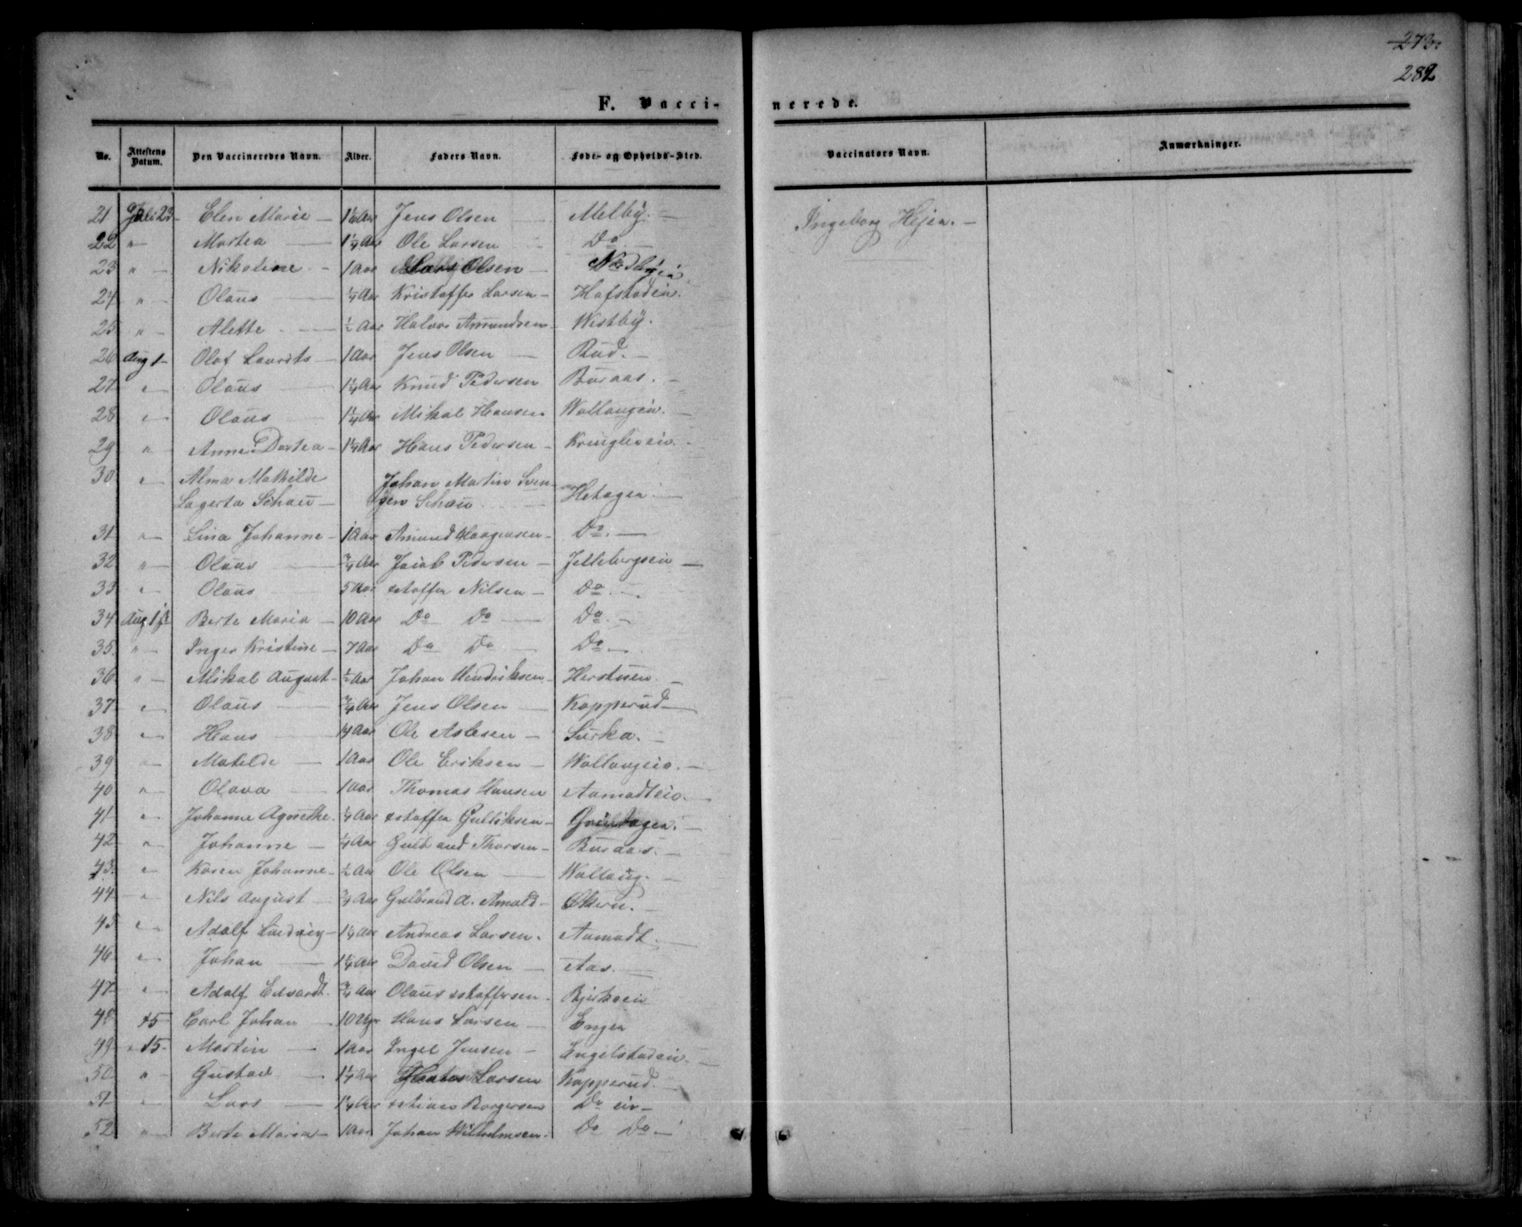 273.
282
F. Vaccinerede.
No. Attestens Datum. Den Vaccineredes Navn. Alder. Faders Navn. Føde- og Opholds-Sted. Vaccinators Navn. Anmærkninger.
21 Juli 23 Elen Marie Jens Olsen Melby. Ingeborg Hejen.
22 " Martea 1¼ Aar Ole Larsen Do
23 " Nikoline 1 Aar Olsen
24 " Olaus Kristoffer Larsen Hofstadeie.
25 " Alette ½ Aar Halvor Amundsen Westby.
26 Aug 1 Olof Laurits 1 Aar Jens Olsen Rud.
27 " Olaus 1¼ Aar Knud Pedersen Buraas.
28 " Olaus 1¼ Aar Mikal Hansen Wollaugeie.
29 " Anne Dortea 1¼ Aar Hans Pedersen Kringlereie.
30 " Alma Mathilde Johan Martin Sven-
Lagerta Schau sen Schau Hetagen
31 " Lina Johanne 1 Aar Amund Haagensen Do.
32 " Olaus ¾ Aar Jacob Pedersen Jelleborgseie
33 " Olaus 5 Aar stoffer Nilsen Do
34 Aug 1 Berte Maria 10 Aar Do Do Do
35 " Inger Kristine 7 Aar Do Do Do
36 " Mikal August ½ Aar Johan Hendriksen Herstuen.
37 " Olaus ¾ Aar Jens Olsen Kopperud
38 " Hans Ole Aslesen Surka.
39 " Matilde 1 Aar Ole Eriksen Wollaugeie.
40 " Olava 1 Aar Thomas Hansen Aamodteie.
41 " Johanne Agnethe ¼ Aar stoffer Gulliksen
42 " Johanne ¼ Aar Gulbrand Thorsen Buraas.
43 " Karen Johanne ½ Aar Ole Olsen Wollaug.
44 " Nils August ¾ Aar Gulbrand A. Amold Økern.
45 " Adolf Ludvig 1¼ Aar Andreas Larsen. Aamodt.
46 " Johan 1¼ Aar David Olsen Aas.
47 " Adolf Edvardt ¾ Aar Olaus stoffersen.
48 15 Carl Johan Hans Larsen Enger
49 15 Martin 1 Aar Engel Jensen Engelstadeie.
50 " Gustav 1¼ Aar Larsen Kopperud.
51 " Lars 1¼ Aar stian Borgersen Do eie
52 " Berte Maria 1 Aar Johan Wilhelmsen. Do Do